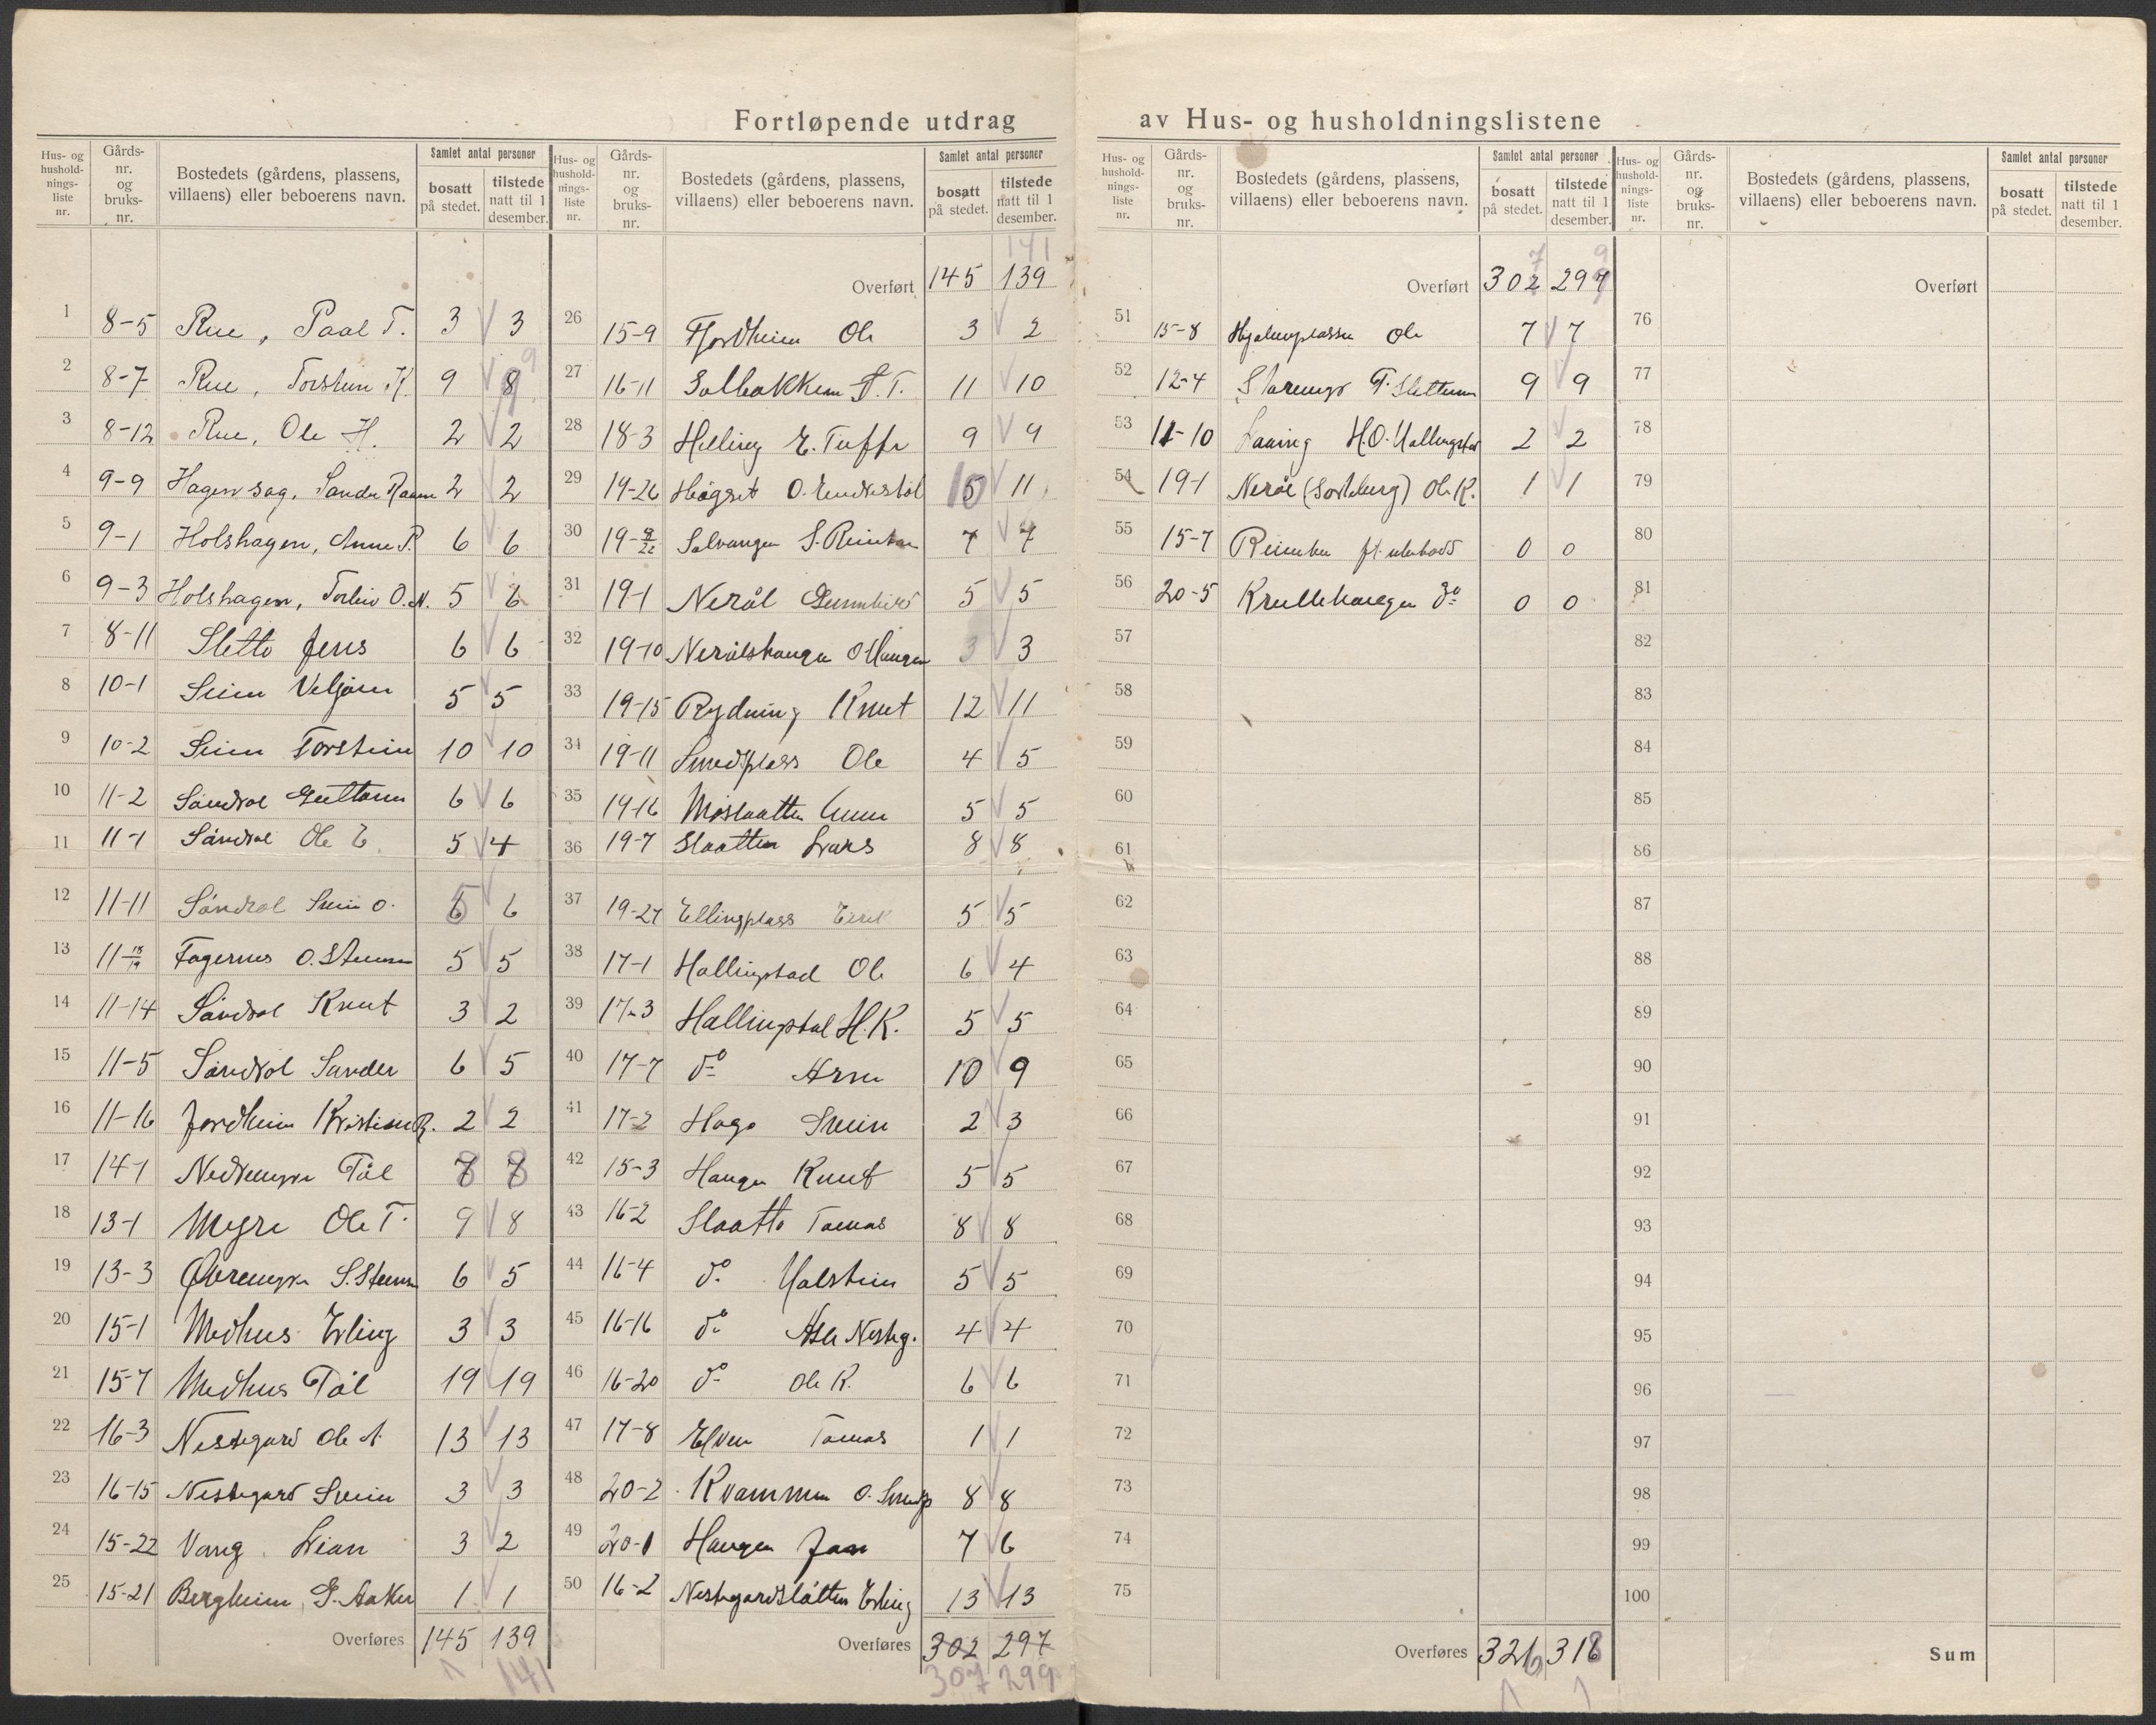 Fortløpende utdrag av Hus- og husholdningslistene
Hus- og husholdnings-liste nr. Gårds-nr. og bruks-nr. Bostedets (gårdens, plassens, villaens) eller beboerens navn. Samlet antal personer bosatt på stedet. tilstede natt til 1 desember.
1 8-5 Rue, Paal T. 3 3
2 8-7 Rue, Torstein K. 9 8 9
3 8-12 Rue, Ole H. 2 2
4 9-9 Hagen sag, Sander 2 2
5 9-1 Holshagen, Anne P. 6 6
6 9-3 Holshagen, Torleiv O. N. 5 6
7 8-11 Sletto Jens 6 6
8 10-1 Seim Veljörn 5 5
9 10-2 Seim Torstein 10 10
10 11-2 Sündrol Guttorm 6 6
11 11-1 Sündrol Ole E. 5 4
12 11-11 Sündrol Svein O. 6
13 11-18/19 Fagernes O. 5 5
14 11-14 Sündrol Knut 3 2
15 11-5 Sündrol Sander 6 5
16 11-16 Jordheim Kristian R. 2 2
17 14-1 Nedremyre Tål 8 8
18 13-1 Myre Ole T. 9 8
19 13-3 Øvremyr S. 6 5
20 15-1 Medhus Erling 3 3
21 15-7 Medhus Tål 19 19
22 16-3 Nestegard Ole A. 13 13
23 16-15 Nestegard Svein 3 3
24 15-22 Vang, Lian 3 2
25 15-21 Bergheim, G. Aaker 1 1
Overføres 145 139
141
Hus- og husholdnings-liste nr. Gårds-nr. og bruks-nr. Bostedets (gårdens, plassens, villaens) eller beboerens navn. Samlet antal personer bosatt på stedet. tilstede natt til 1 desember.
141
Overført 145 139
26 15-9 Fjordheim Ole 3 2
27 16-11 Solbakken T. T. 11 10
28 18-3 Helling E. Tuffte 9 9
29 19-26 Høgset O. 11
30 19- Solvangen S. 7 7
31 19-1 Nerål Gunnhild 5 5
32 19-10 Nerålshaugen O Haugen 3 3
33 19-15 Rydning Knut 12 11
34 19-11 Smedsplass Ole 4 5
35 19-16 Moslaatten 5 5
36 19-7 Slaatten Lars 8 8
37 19-27 Ellingplass Eirik 5 5
38 17-1 Hallingstad Ole 6 4
39 17-3 Hallingstad H. K. 5 5
40 17-7 do Arne 10 9
41 17-2 Hago Svein 2 3
42 15-3 Haugen Knut 5 5
43 16-2 Slaatto Tomas 8 8
44 16-4 do Halstein 5 5
45 16-16 do Asle Nesteg. 4 4
46 16-20 do Ole K. 6 6
47 17-8 Elven Tomas 1 1
48 20-2 Kvammen O. Smedsp 8 8
49 20-1 Haugen Jan 7 6
50 16-2 Nestegardslåtten Erling 13 13
Overføres 302 297
307 299
Hus- og husholdnings-liste nr. Gårds-nr. og bruks-nr. Bostedets (gårdens, plassens, villaens) eller beboerens navn. Samlet antal personer bosatt på stedet. tilstede natt til 1 desember.
7 9
Overført 302 297
51 15-8 Hjalmplassen Ole 7 7
52 12-4 T. Slettemoen 9 9
53 11-10 Laaing H. O. Hallingstad 2 2
54 19-1 Nerål (Soleberg) Ole K. 1 1
55 15-7 0 0
56 20-5 Krullehaugen do 0 0
57
58
59
60
61
62
63
64
65
66
67
68
69
70
71
72
73
74
75
Overføres 326 318
Hus- og husholdnings-liste nr. Gårds-nr. og bruks-nr. Bostedets (gårdens, plassens, villaens) eller beboerens navn. Samlet antal personer bosatt på stedet. tilstede natt til 1 desember.
Overført
76
77
78
79
80
81
82
83
84
85
86
87
88
89
90
91
92
93
94
95
96
97
98
99
100
Sum